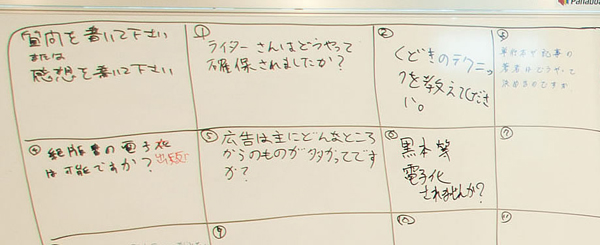 質問を書いて下さい
または
感想を書いて下さい
①
ライターさんはどうやって
確保されましたか？
②
くどきのテクニッ
クを教えてくださ
い。
③
単行本や記事の
著者はどうやって
決めるのですか
④
絶版書の電子化
は可能ですか？
出版
⑤
広告は主にどんなところ
からのものが多かったです
か？
⑥
黒本
電子化
されませんか？
⑦
⑨
⑩
⑪
Panabo